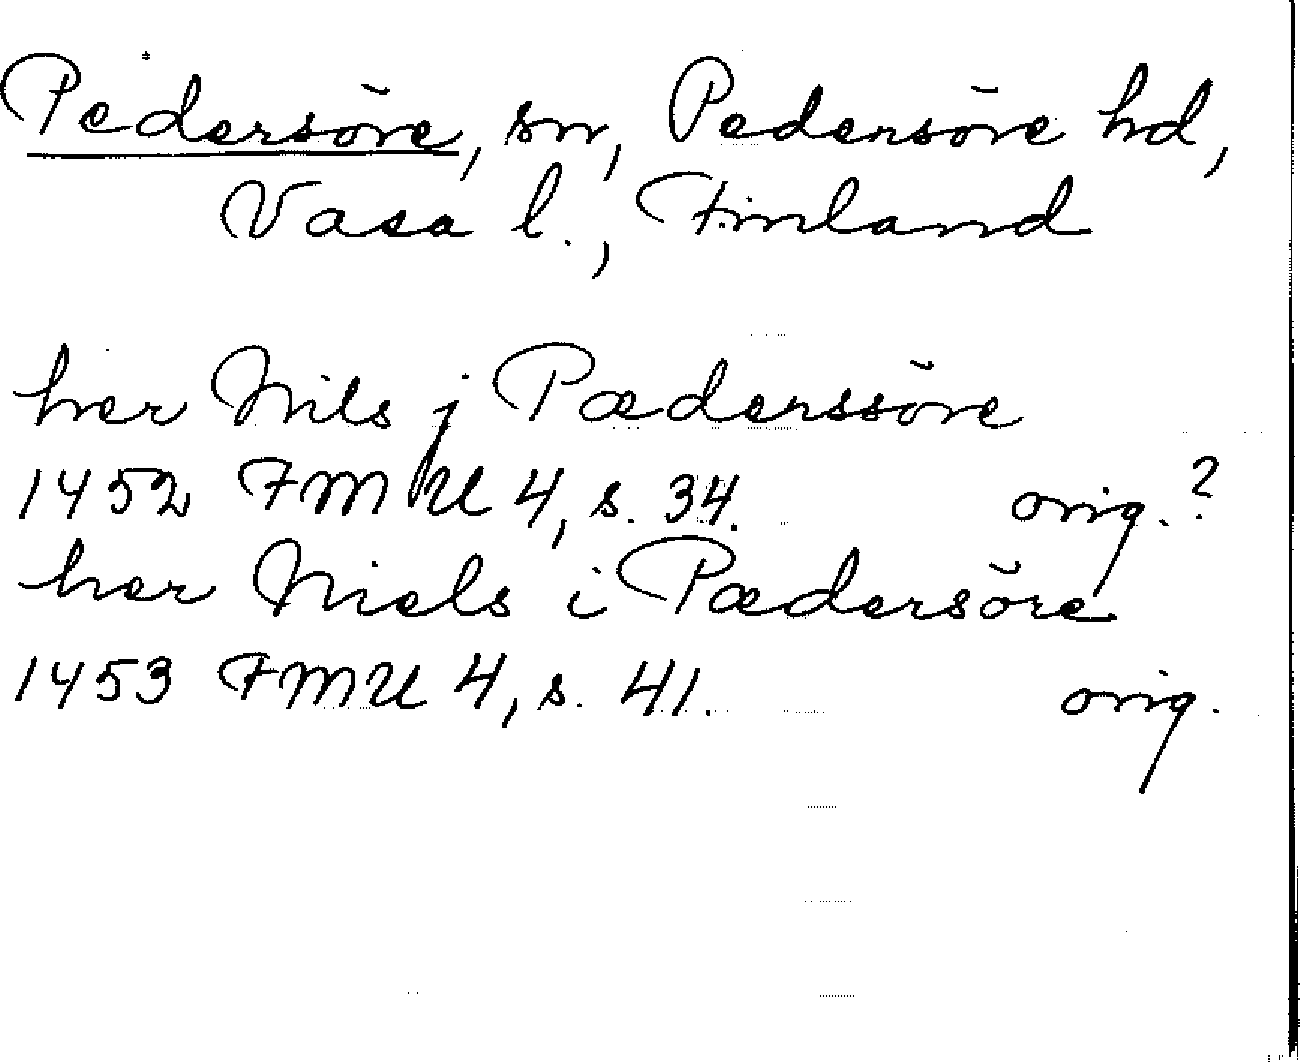 Pedersöre, sn, Pedersöre hd,
Vasa l., Finland
her Nils j Pæderssöre
1452 FMU 4, s. 34. orig.?
her Niels i Pædersöre
1453 FMU 4, s. 41. orig.